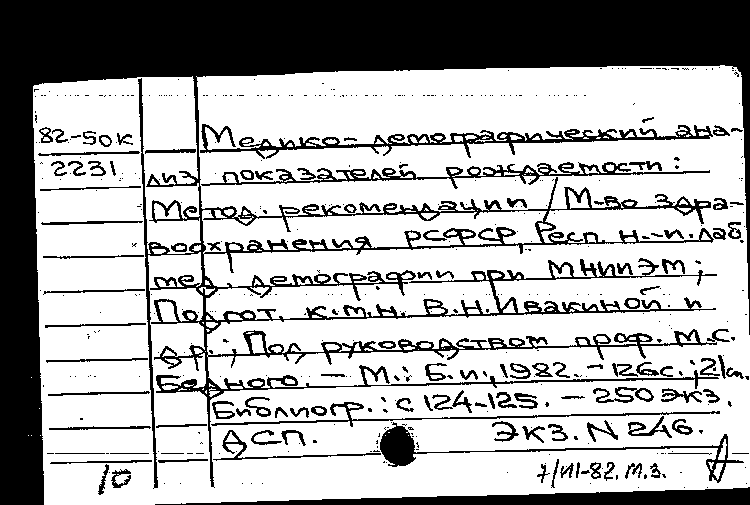 82-50к Медико-демографический ана-
2231 лиз показателей рождаемости:
Метод. рекомендации / М-во здра-
воохранения РСФСР, Респ. н.-и. лаб.
мед. демографии при МНИИЭМ;
Подгот. к.м.н. В.Н.Ивакиной и
др.; Под руководством проф. М.С.
Бедного. - М.: Б.и., 1982. - 126с.; 21см.
Библиогр.: с 124-125. - 250 экз.
ДСП. Экз. N 246.
10 7/VII-82. М.З.